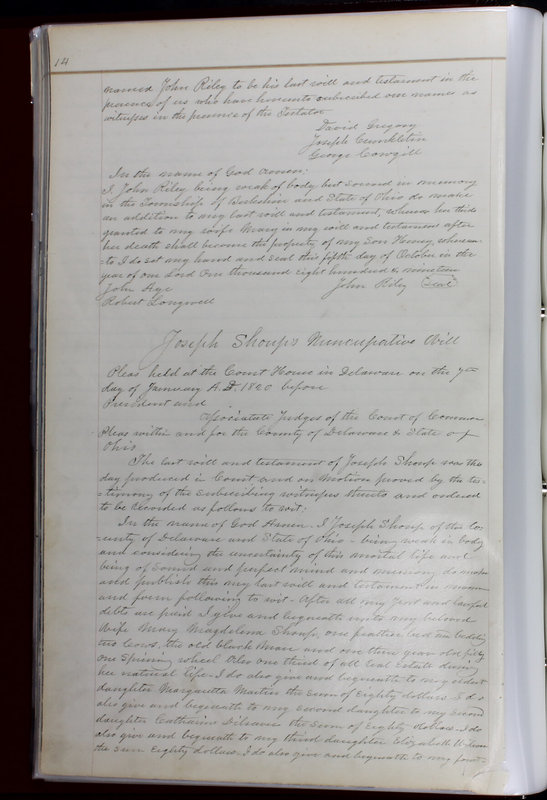 14
named John Riley to be his last will and testament in the
presence of us who have hereunto subscribed our names as
witnesses in the presence of the Testator
David Gregory
Joseph Crunkleton
George Cowgill
In the name of God Amen:
I, John Riley being weak of body but sound in memory
in the Township of Berkshire and State of Ohio do make
an addition to my last will and testament, whereas her third
granted to my wife Mary in my will and testament after
her death shall become the property of my Son Henry, whereun-
=to I do set my hand and seal this fifth day of October in the
year of our Lord One thousand eight hundred & nineteen
John Riley (seal)
Robert Longwell
Joseph Shoup's Nuncupative Will
Pleas held at the Court House in Delaware on the 7th
day of January A.D. 1820 before
President and
Associate Judges of the Court of Common
Pleas within and for the County of Delaware & State of
Ohio
The last will and testament of Joseph Shoup was this
day produced in Court and on Motion proved by the tes-
=timony of the subscribing witnesses thereto and ordered
to be recorded as follows to wit:
In the name of God Amen. I Joseph Shoup of the Co-
=unty of Delaware and State of Ohio - being weak in body
and considering the uncertainty of this mortal life and
being of sound and perfect mind and memory do make
and publish this my last will and testament in manner
and form following to wit - After all my just and lawful
debts are paid I give and bequeath unto my beloved
Wife Mary Magdelena Shoup, one feather bed and bedding
two Cows, the old black Mare and one three year old filly
one Spinning wheel Also one third of all real Estate during
her natural life. I do also give and bequeath to my eldest
daughter Margaretta Martin the sum of Eighty dollars. I do
also give and bequeath to my second daughter to my second
daughter Catharine the sum of eighty dollars I do
also give and bequeath to my third daughter Elizabeth
the sum Eighty dollars. I do also give and bequeath to my four-